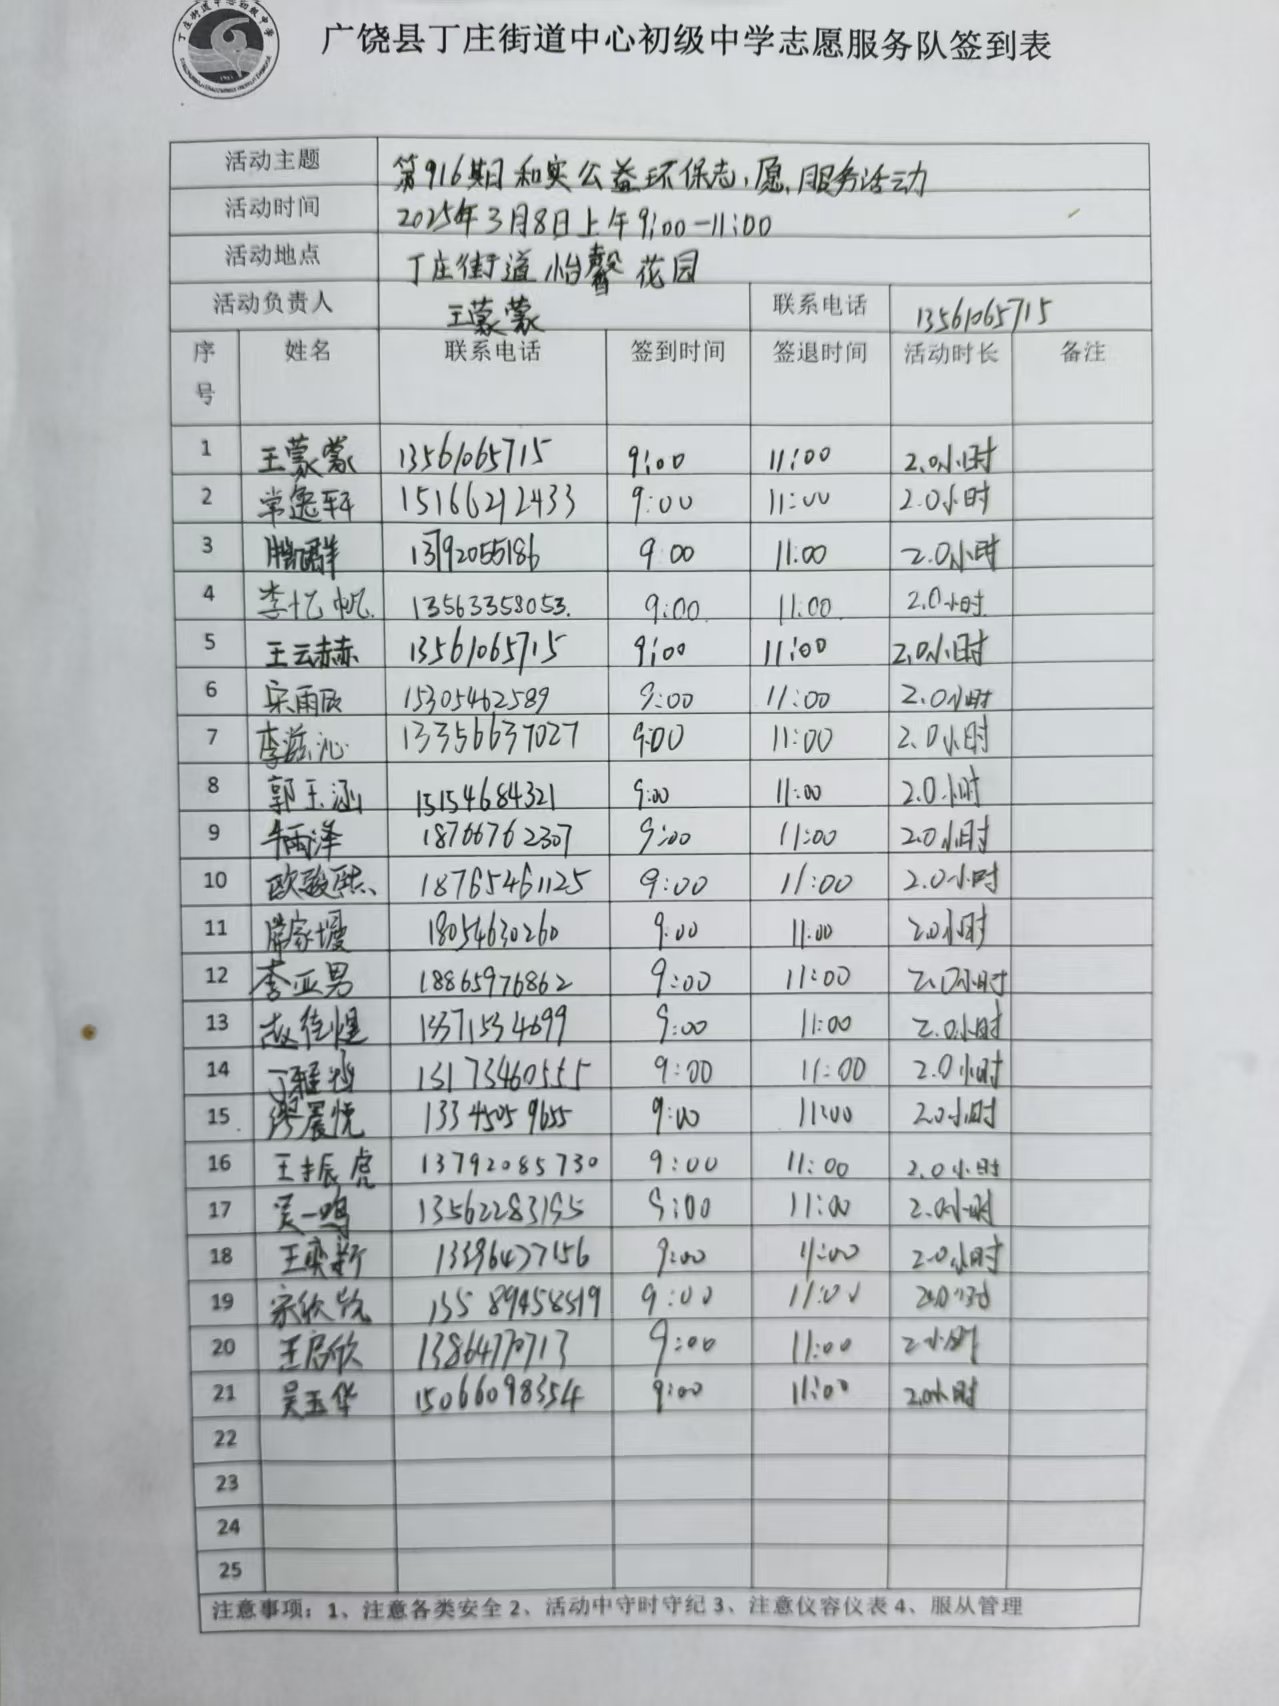 广饶县丁庄街道中心初级中学志愿服务队签到表
活动主题 第916期日和实公益环保志愿服务活动
活动时间 2025年3月8日上午9:00-11:00
活动地点 丁庄街道怡馨花园
活动负责人 王蒙蒙 联系电话 13561065715
序号 姓名 联系电话 签到时间 签退时间 活动时长 备注
1 王蒙蒙 13561065715 9:00 11:00 2.0小时
2 常逸轩 15166212433 9:00 11:00 2.0小时
3 13792055186 9:00 11:00 2.0小时
4 李忆帆 13563358053 9:00 11:00 2.0小时
5 王云赫 13561065715 9:00 11:00 2.0小时
6 宋雨欣 15305462589 9:00 11:00 2.0小时
7 李滋沁 13356637027 9:00 11:00 2.0小时
8 郭玉涵 15154684321 9:00 11:00 2.0小时
9 牛雨泽 18766762307 9:00 11:00 2.0小时
10 欧骏熙 18765461125 9:00 11:00 2.0小时
11 18054630260 9:00 11:00 2.0小时
12 李亚男 18865976862 9:00 11:00 2.0小时
13 赵佳煜 13371534699 9:00 11:00 2.0小时
14 13173460555 9:00 11:00 2.0小时
15 缪晨悦 13345059655 9:00 11:00 2.0小时
16 王振虎 13792085730 9:00 11:00 2.0小时
17 吴一鸣 13562283195 9:00 11:00 2.0小时
18 王奕新 13396477156 9:00 11:00 2.0小时
19 13589458519 9:00 11:00 2.0小时
20 王启欣 13864770713 9:00 11:00 2小时
21 吴玉华 15066098354 9:00 11:00 2.0小时
22
23
24
25
注意事项：1、注意各类安全 2、活动中守时守纪 3、注意仪容仪表 4、服从管理